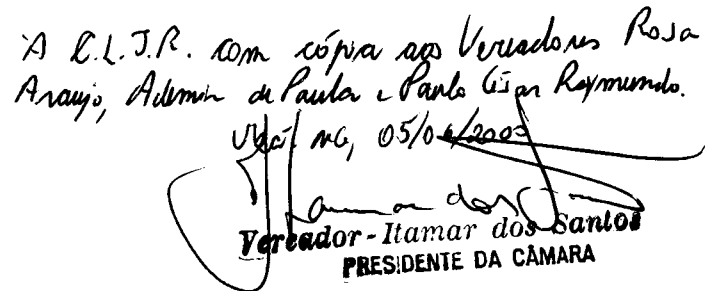 A C.L.J.R. com cópia aos Vereadores Rosa
Araujo, Ademir de Paula e Paulo César Raymundo.
MG, 05/0
Vereador - Itamar dos Santos
PRESIDENTE DA CÂMARA